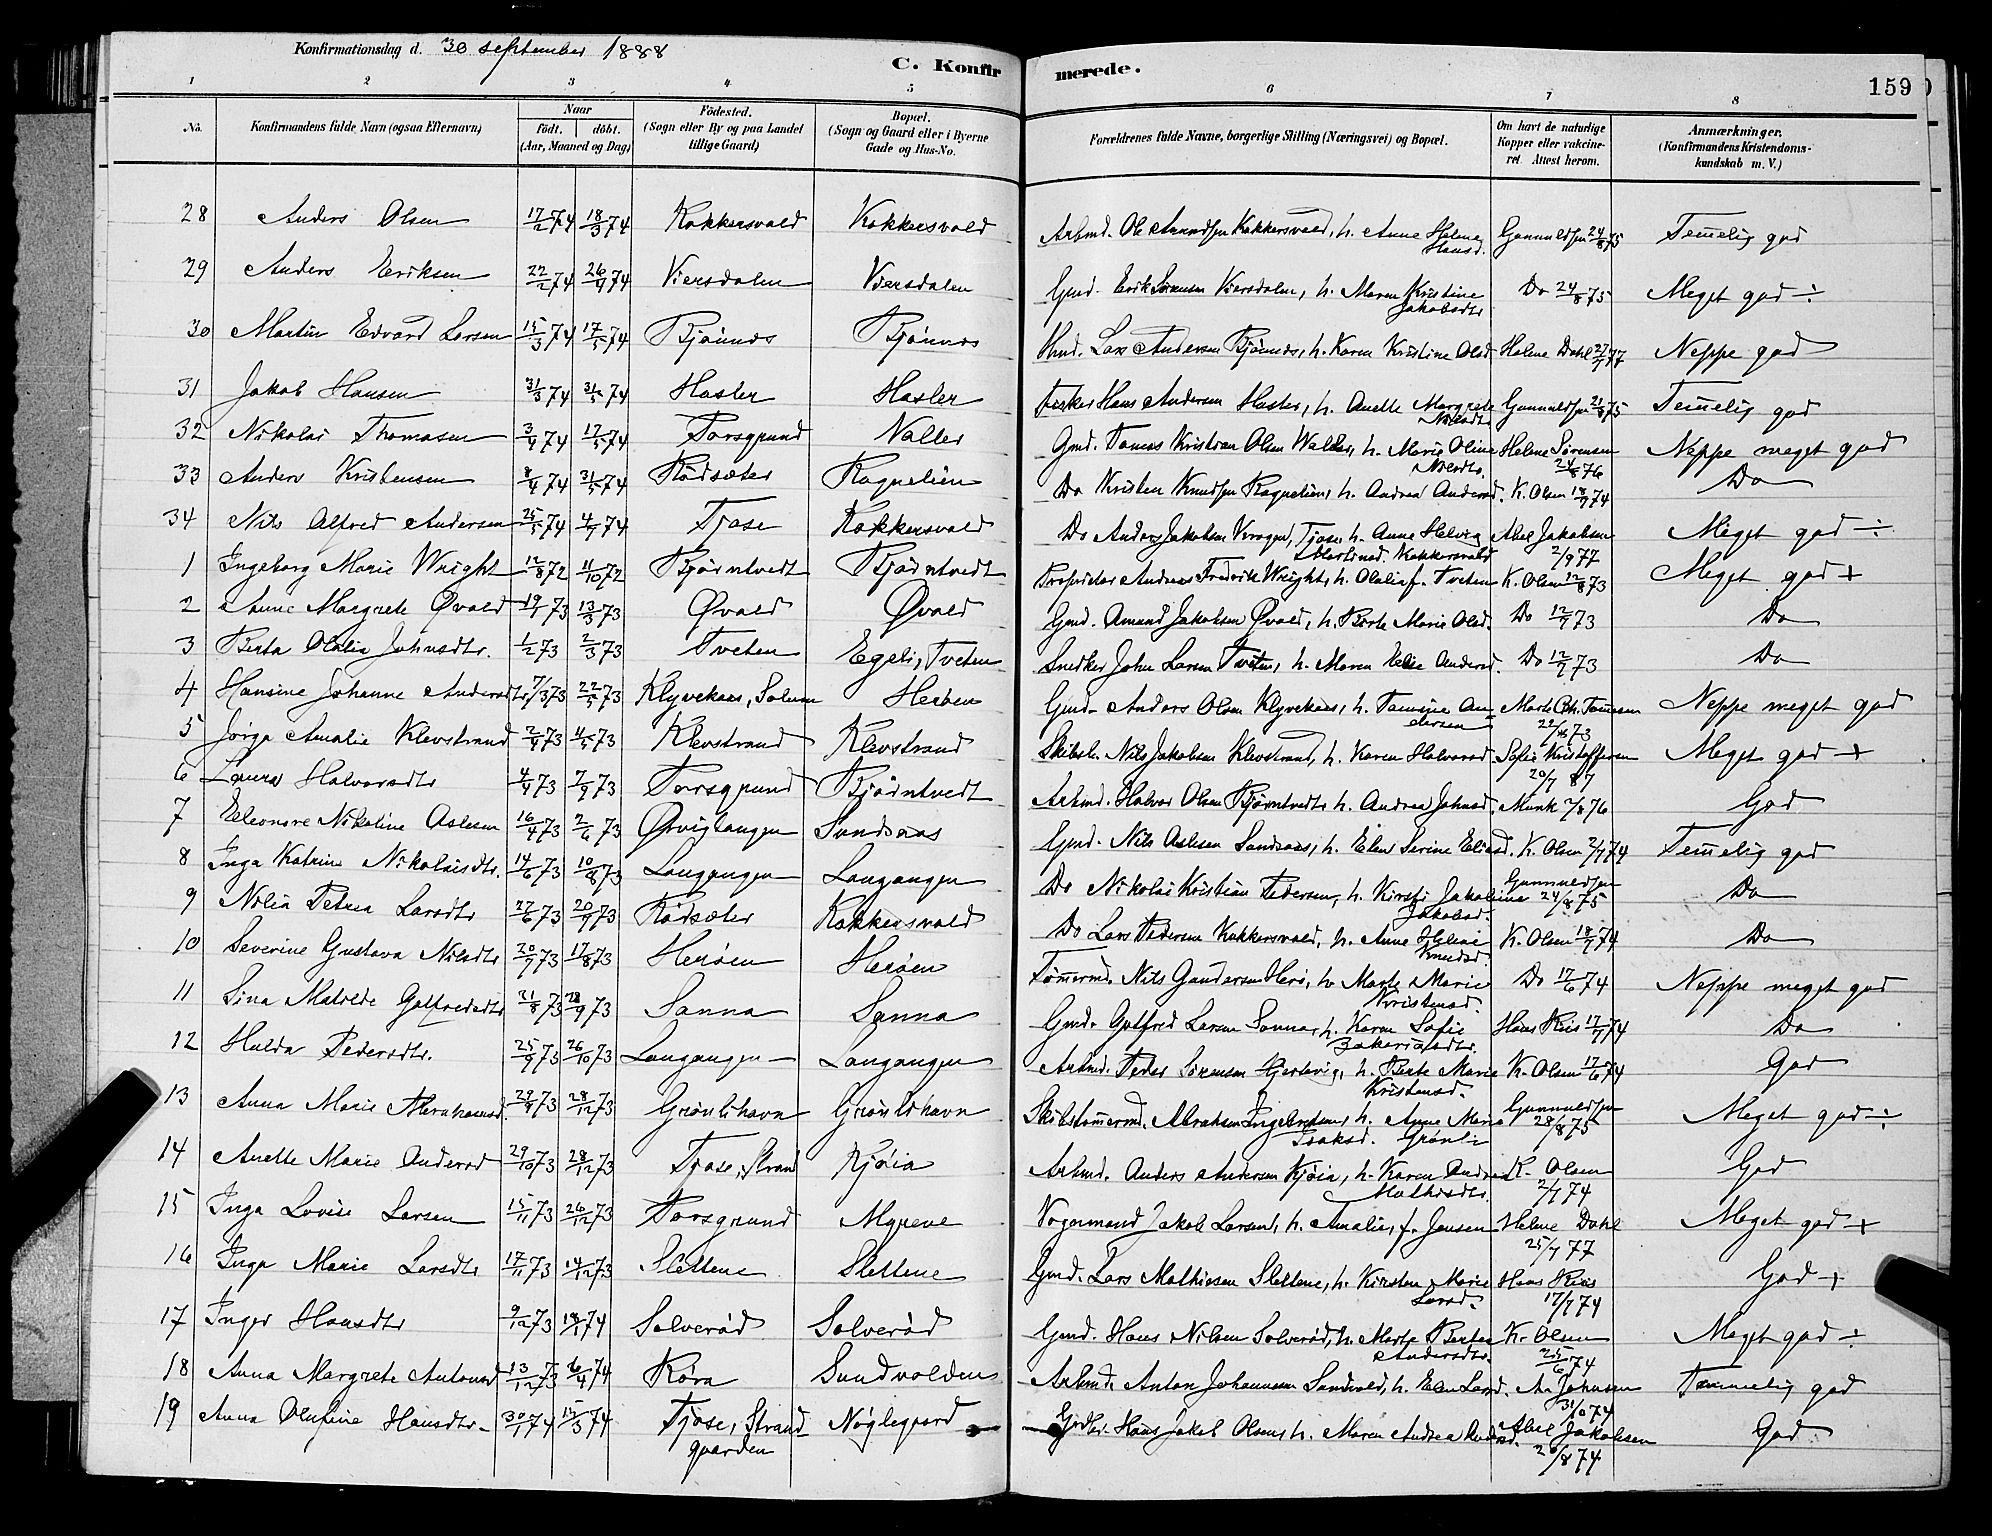 Konfirmationsdag d. 30 september 1888
C. Konfirmerede.
159
1 2 3 4 5 6 7 8
No. Konfirmandens fulde Navn (ogsaa Efternavn) Naar födt. döbt. (Aar, Maaned og Dag) Födested. (Sogn eller By og paa Landet tillige Gaard) Bopæl. (Sogn og Gaard eller i Byerne Gade og Hus-No. Forældrenes fulde Navne, borgerlige Stilling (Næringsvei) og Bopæl. Om havt de naturlige Kopper eller vakcineret. Attest herom. Anmærkninger. (Konfirmandens Kristendomskundskab m. V.)
28 Anders Olsen 17/2 74 18/3 74 Kokkersvold Kokkersvold Arbmd. Ole Kokkersvold, h. Anne Helene Hansd. 24/8 75 Temelig god
29 Anders Eriksen 22/2 74 26/4 74 Viersdalen Viersdalen Gmd. Erik Sørensen Viersdalen, h. Maren Kristine Jakobsdtr. Do 24/8 75 Meget god ÷
30 Martin Edvard Larsen 15/3 74 17/5 74 Bjönnes Bjönnes Hmd. Lars Andersen Bjönnes, h. Karen Kristine Olsd. Helene Dahl 27/7 77 Neppe god
31 Jakob Hansen 31/3 74 31/5 74 Hasler Hasler Fisker Hans Andersen Hasler, h. Anette Margrete Nilsdtr. Temelig god
32 Nikolai Thomasen 3/4 74 17/5 74 Porsgrund Valler Gmd. Tomas Kristian Olsen Valler, h. Marie Oline Nilsdtr. Helene Sørensen 24/8 76 Neppe meget god
33 Anders Kristensen 8/4 74 31/5 74 Rödsæter Rognelien Do Kristen Knudsen Rognelien, h. Andrea Andersd. K. Olsen 18/7 74 Do
34 Nils Alfred Andersen 25/5 74 4/7 74 Tjose Kokkersvold Do Anders Jakobsen Krogen, Tjose, h. Anne Helvig Kokkersvold Abel Jakobsen 2/9 77 Meget god ÷
1 Ingeborg Marie Wright 12/8 72 11/10 72 Bjørntvedt Bjørntvedt Proprietær Andreas Fredrik Wright, h. Olalia f. Tveten K. Olsen 12/8 73 Meget god +
2 Anne Margrete Øvald 19/1 73 13/3 73 Øvald Øvald Gmd. Amund Jakobsen Øvald, h. Berte Marie Olsd. Do 12/7 73 Do
3 Berta Olalia Johnsdtr. 1/2 73 2/3 73 Tveten Egeli, Tveten Snedker John Larsen Tveten, h. Maren Andersd. Do 12/7 73 Do
4 Hansine Johanne Andersdtr. 7/3 73 22/5 73 Klyvekaas, Solum Heröen Gmd. Anders Olsen Klyvekaas, h. Tamine Andersen Neppe meget god
5 Jørga Amalie Klevstrand 2/4 73 4/5 73 Klevstrand Klevstrand Skibsb. Nils Jakobsen Klevstrand, h. Karen Halvorsd. Sofie Kristoffersen 20/7 87 Meget god +
6 Laura Halvorsdtr 4/4 73 7/9 73 Porsgrund Bjørntvedt Arbmd. Halvor Olsen Bjørntvedt, h. Andrea Johnsd. Munk 2/8 76 God
7 Eleonore Nikoline Aslesen 16/4 73 2/6 73 Ørvigtangen Sundsaas Gmd. Nils Aslesen Sundsaas, h. Elen Serine Eliasd. K. Olsen 2/7 74 Temelig god
8 Inga Katrine Nikolaisdtr. 14/6 73 10/8 73 Langangen Langangen Do Nikolai Kristian Pedersen, h. Kirsti Jakobine Jakobsd. 24/8 75 Do
9 Nilia Petrea Larsdtr 27/6 73 20/9 73 Rödsæter Kokkersvold Do Lars Pedersen Kokkersvold, h. Anne Helene Knudsd. K. Olsen 18/7 74 Do
10 Severine Gustava Nilsdtr 20/7 73 17/8 73 Heröen Heröen Tömermd. Nils Gundersen Herö, h. Marte Marie Kristensd. Do 17/6 74 Neppe meget god
11 Sina Matilde Gotfredsdtr 31/8 73 28/9 73 Sanna Sanna Gmd. Gotfred Larsen Sanna, h. Karen Sofie Zakariasdtr. Hans Riis 17/7 74 Do
12 Hulda Pedersdtr. 25/9 73 26/10 73 Langangen Langangen Arbmd. Peder Sørensen Hjertevig, h. Berte Marie Kristensd. K. Olsen 17/6 74 God
13 Anna Marie Abrahamsd. 29/9 73 28/12 73 Grönlihavn Grönlihavn Skibstömermd. Abraham Ingebretsen, h. Anne Marie Isaksd. Grönli 28/8 75 Meget god ÷
14 Anette Marie Andersd 29/10 73 28/12 73 Tjose, Strand Kjöia Arbmd. Anders Andersen Kjöia, h. Karen Andrea Mathisdtr. K. Olsen 2/7 74 God
15 Inga Lovise Larsen 15/11 73 26/12 73 Porsgrund Myrene Vognmand Jakob Larsen, h. Amalie, f. Jensen Helene Dahl 25/7 77 Meget god +
16 Inga Marie Larsdtr 17/11 73 14/12 73 Slettene Slettene Gmd. Lars Mathisen Slettene, h. Kirsten Marie Larsd. Hans Riis 17/7 74 God +
17 Inger Hansdtr 9/12 73 18/1 74 Solveröd Solveröd Gmd. Hans Nilsen Solveröd, h. Marte Andersdtr. K. Olsen 25/6 74 Meget god ÷
18 Anna Margrete Antonsd 13/12 73 6/4 74 Röra Sundvolden Arbmd. Anton Johannsen Sundvold, h. Elen Larsd. A. Johnsen Temmelig god
19 Anna Olufine Hansdtr. 30/1 74 15/3 74 Tjose, Strandgaarden Nöglegaard Hans Jakob Olsen, h. Maren Andrea Andersd. Abel Jakobsen God